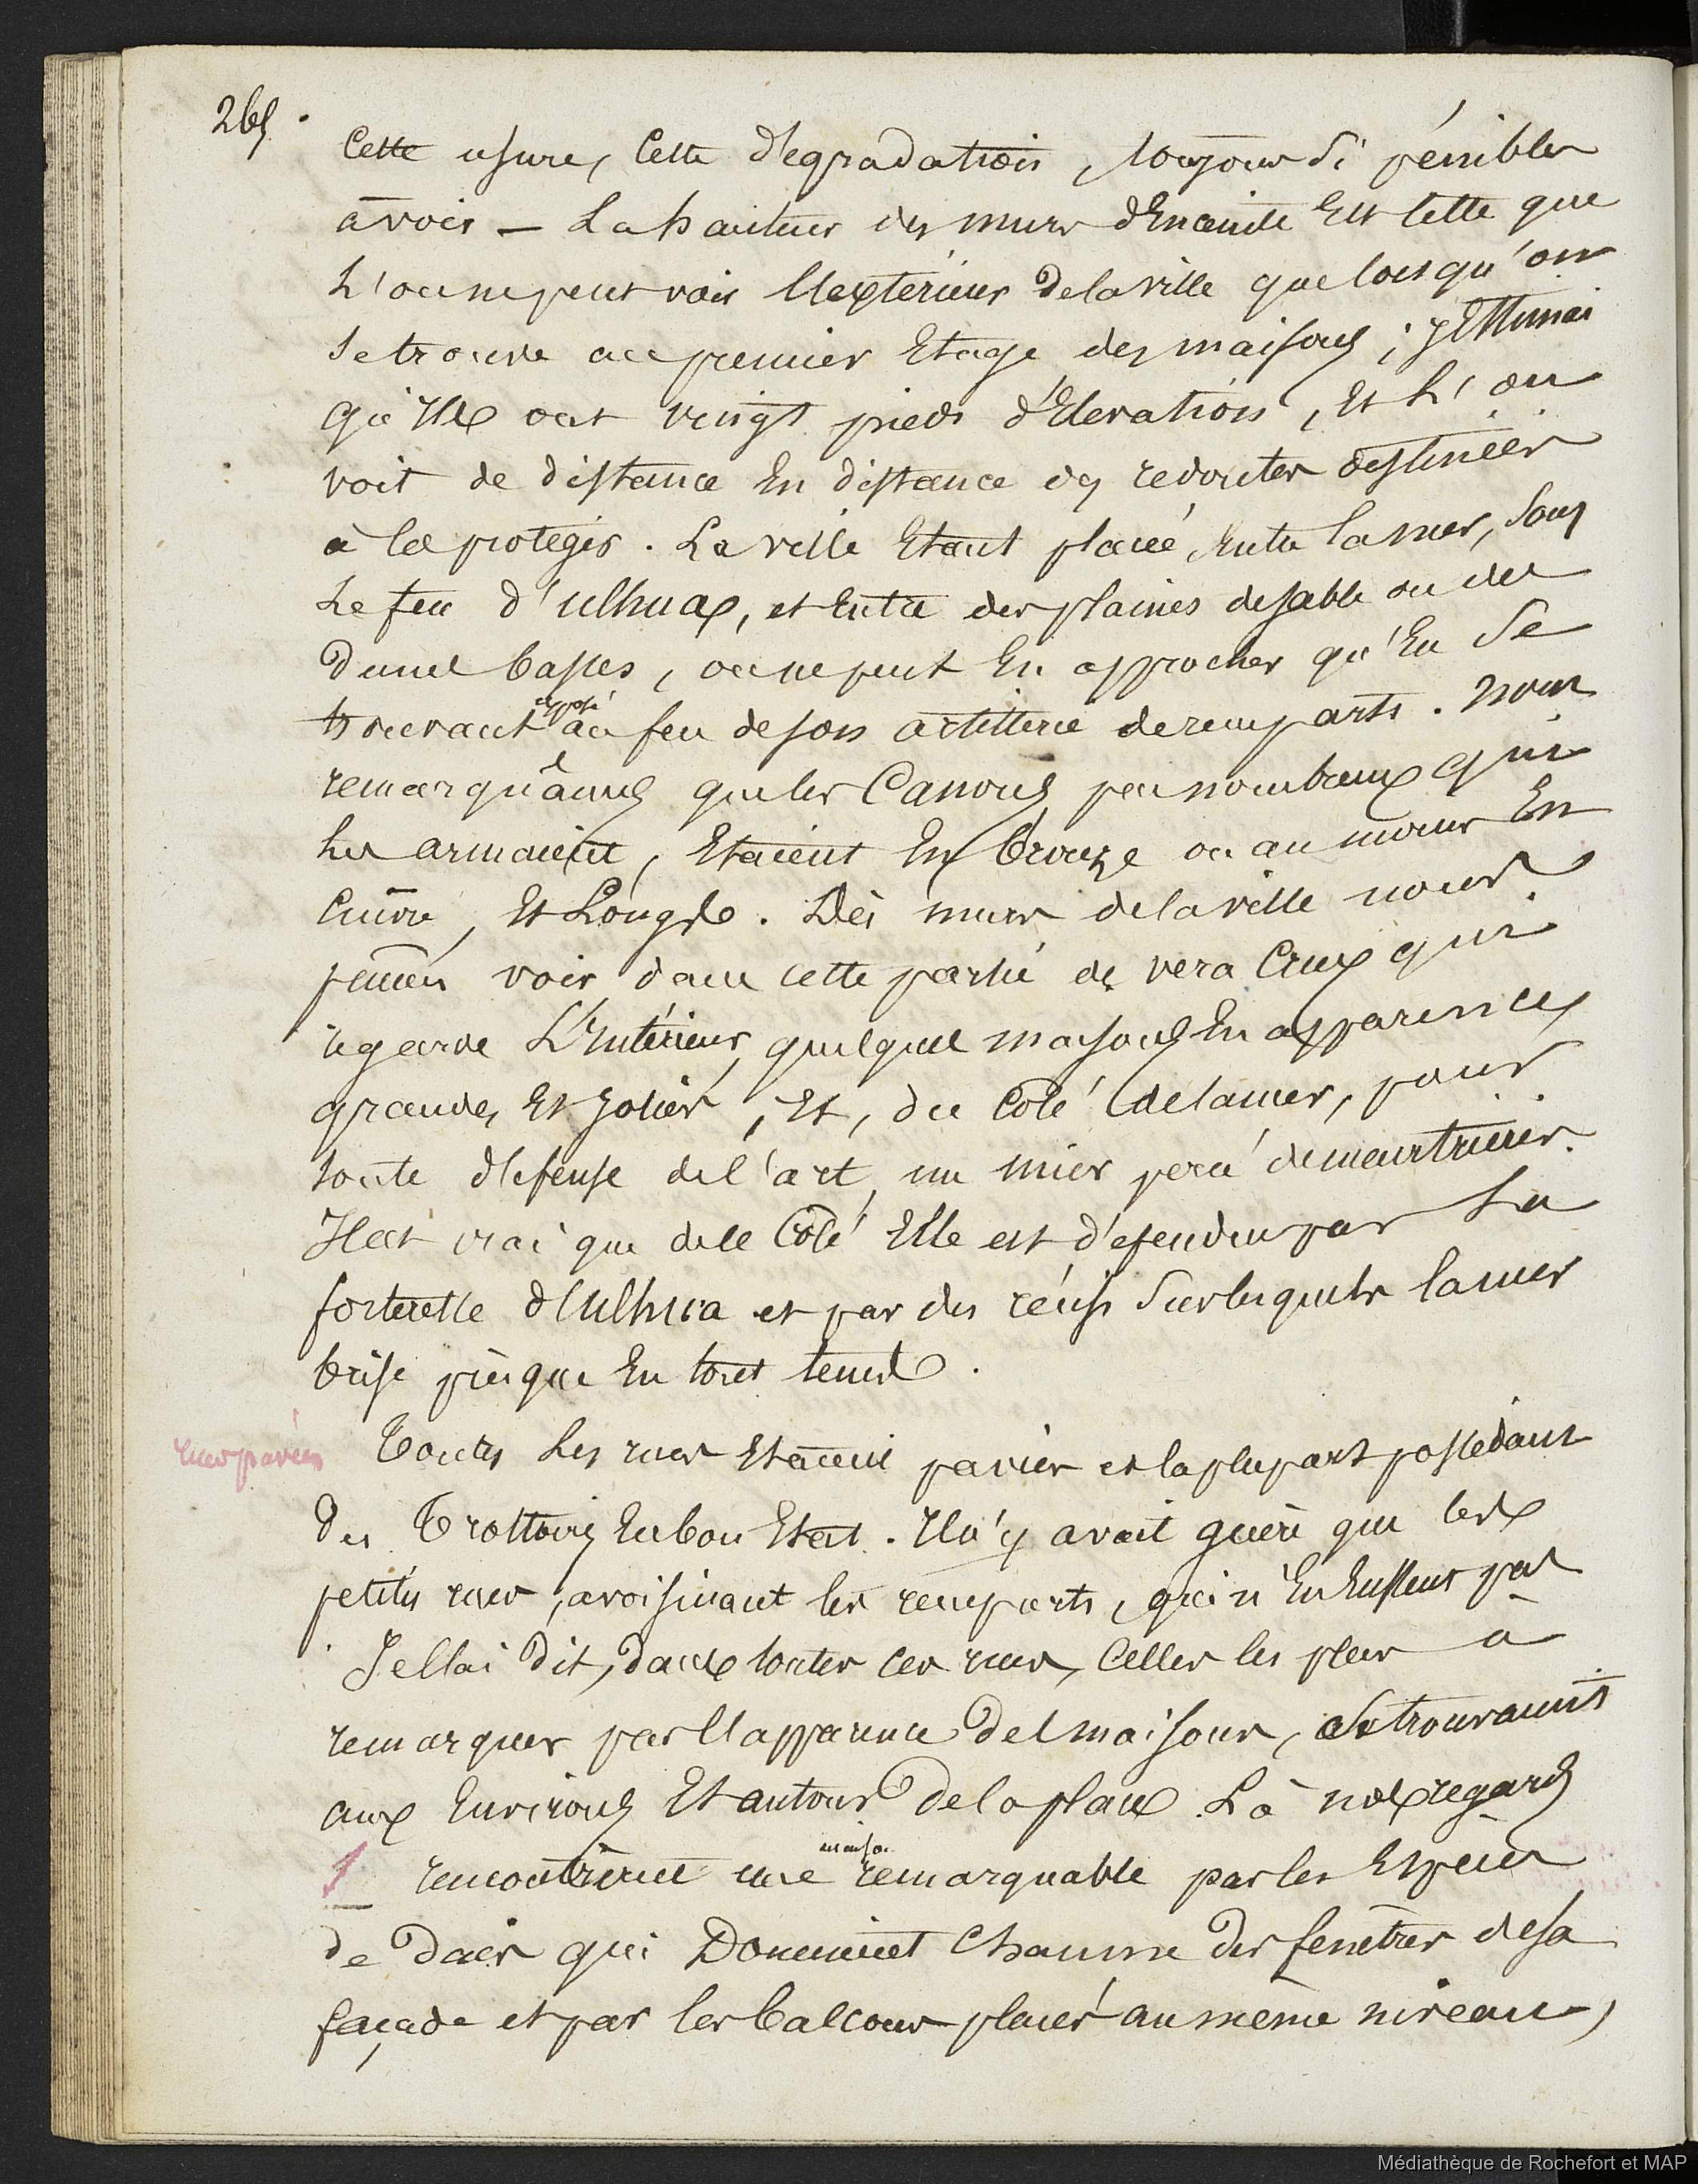 265.
Cette usure, cette dégradation, toujours si pénibles
à voir — La hauteur des murs d'Enceinte Est telle que
L'on ne peut voir l'extérieur de la ville que lorsqu'on
se trouve au premier Etage des maisons ; J'Estimai
qu'Ils ont vingt pieds d'Elévation, Et L'on
voit de distance En distance des redoutes destinées
à la protéger. La ville Etant placée Entre la mer, sous
Le feu d'ulhua, et Entre des plaines de sable ou des
dunes basses, on ne peut En approcher qu'En se
trouvant exposé au feu de son artillerie de remparts. Nous
remarquâmes que les Canons peu nombreux qui
Les armaient, Etaient En bronze ou au moins En
Cuivre, Et Longs. Des murs de la ville nous
pûmes voir dans cette partie de vera Crux qui
regarde L'Intérieur, quelques maisons En apparence
grandes Et Jolies, Et, du Côté de la mer, pour
toute défense de l'art, un mur percé de meurtrières.
Il est vrai que de ce Côté Elle est défendue par La
forteresse d'Ulhua et par des récifs sur lesquels la mer
brise presque En tout tems.
rues pavées
Toutes Les rues Etaient pavées et la plupart possédant
des Trottoirs En bon Etat. Il n'y avait guère que les
petites rues, avoisinant les remparts, qui n'En Eussent pas
Je l'ai dit, dans toutes ces rues, Celles les plus a
remarquer par l'apparence des maisons, se trouvaient
aux Environs Et autour de la place. Là nos regards
rencontrèrent une maison remarquable par les Espèces
de dais qui Dominaient Chacune des fenêtres de sa
façade et par les balcons placés au même niveau,
Médiathèque de Rochefort et MAP